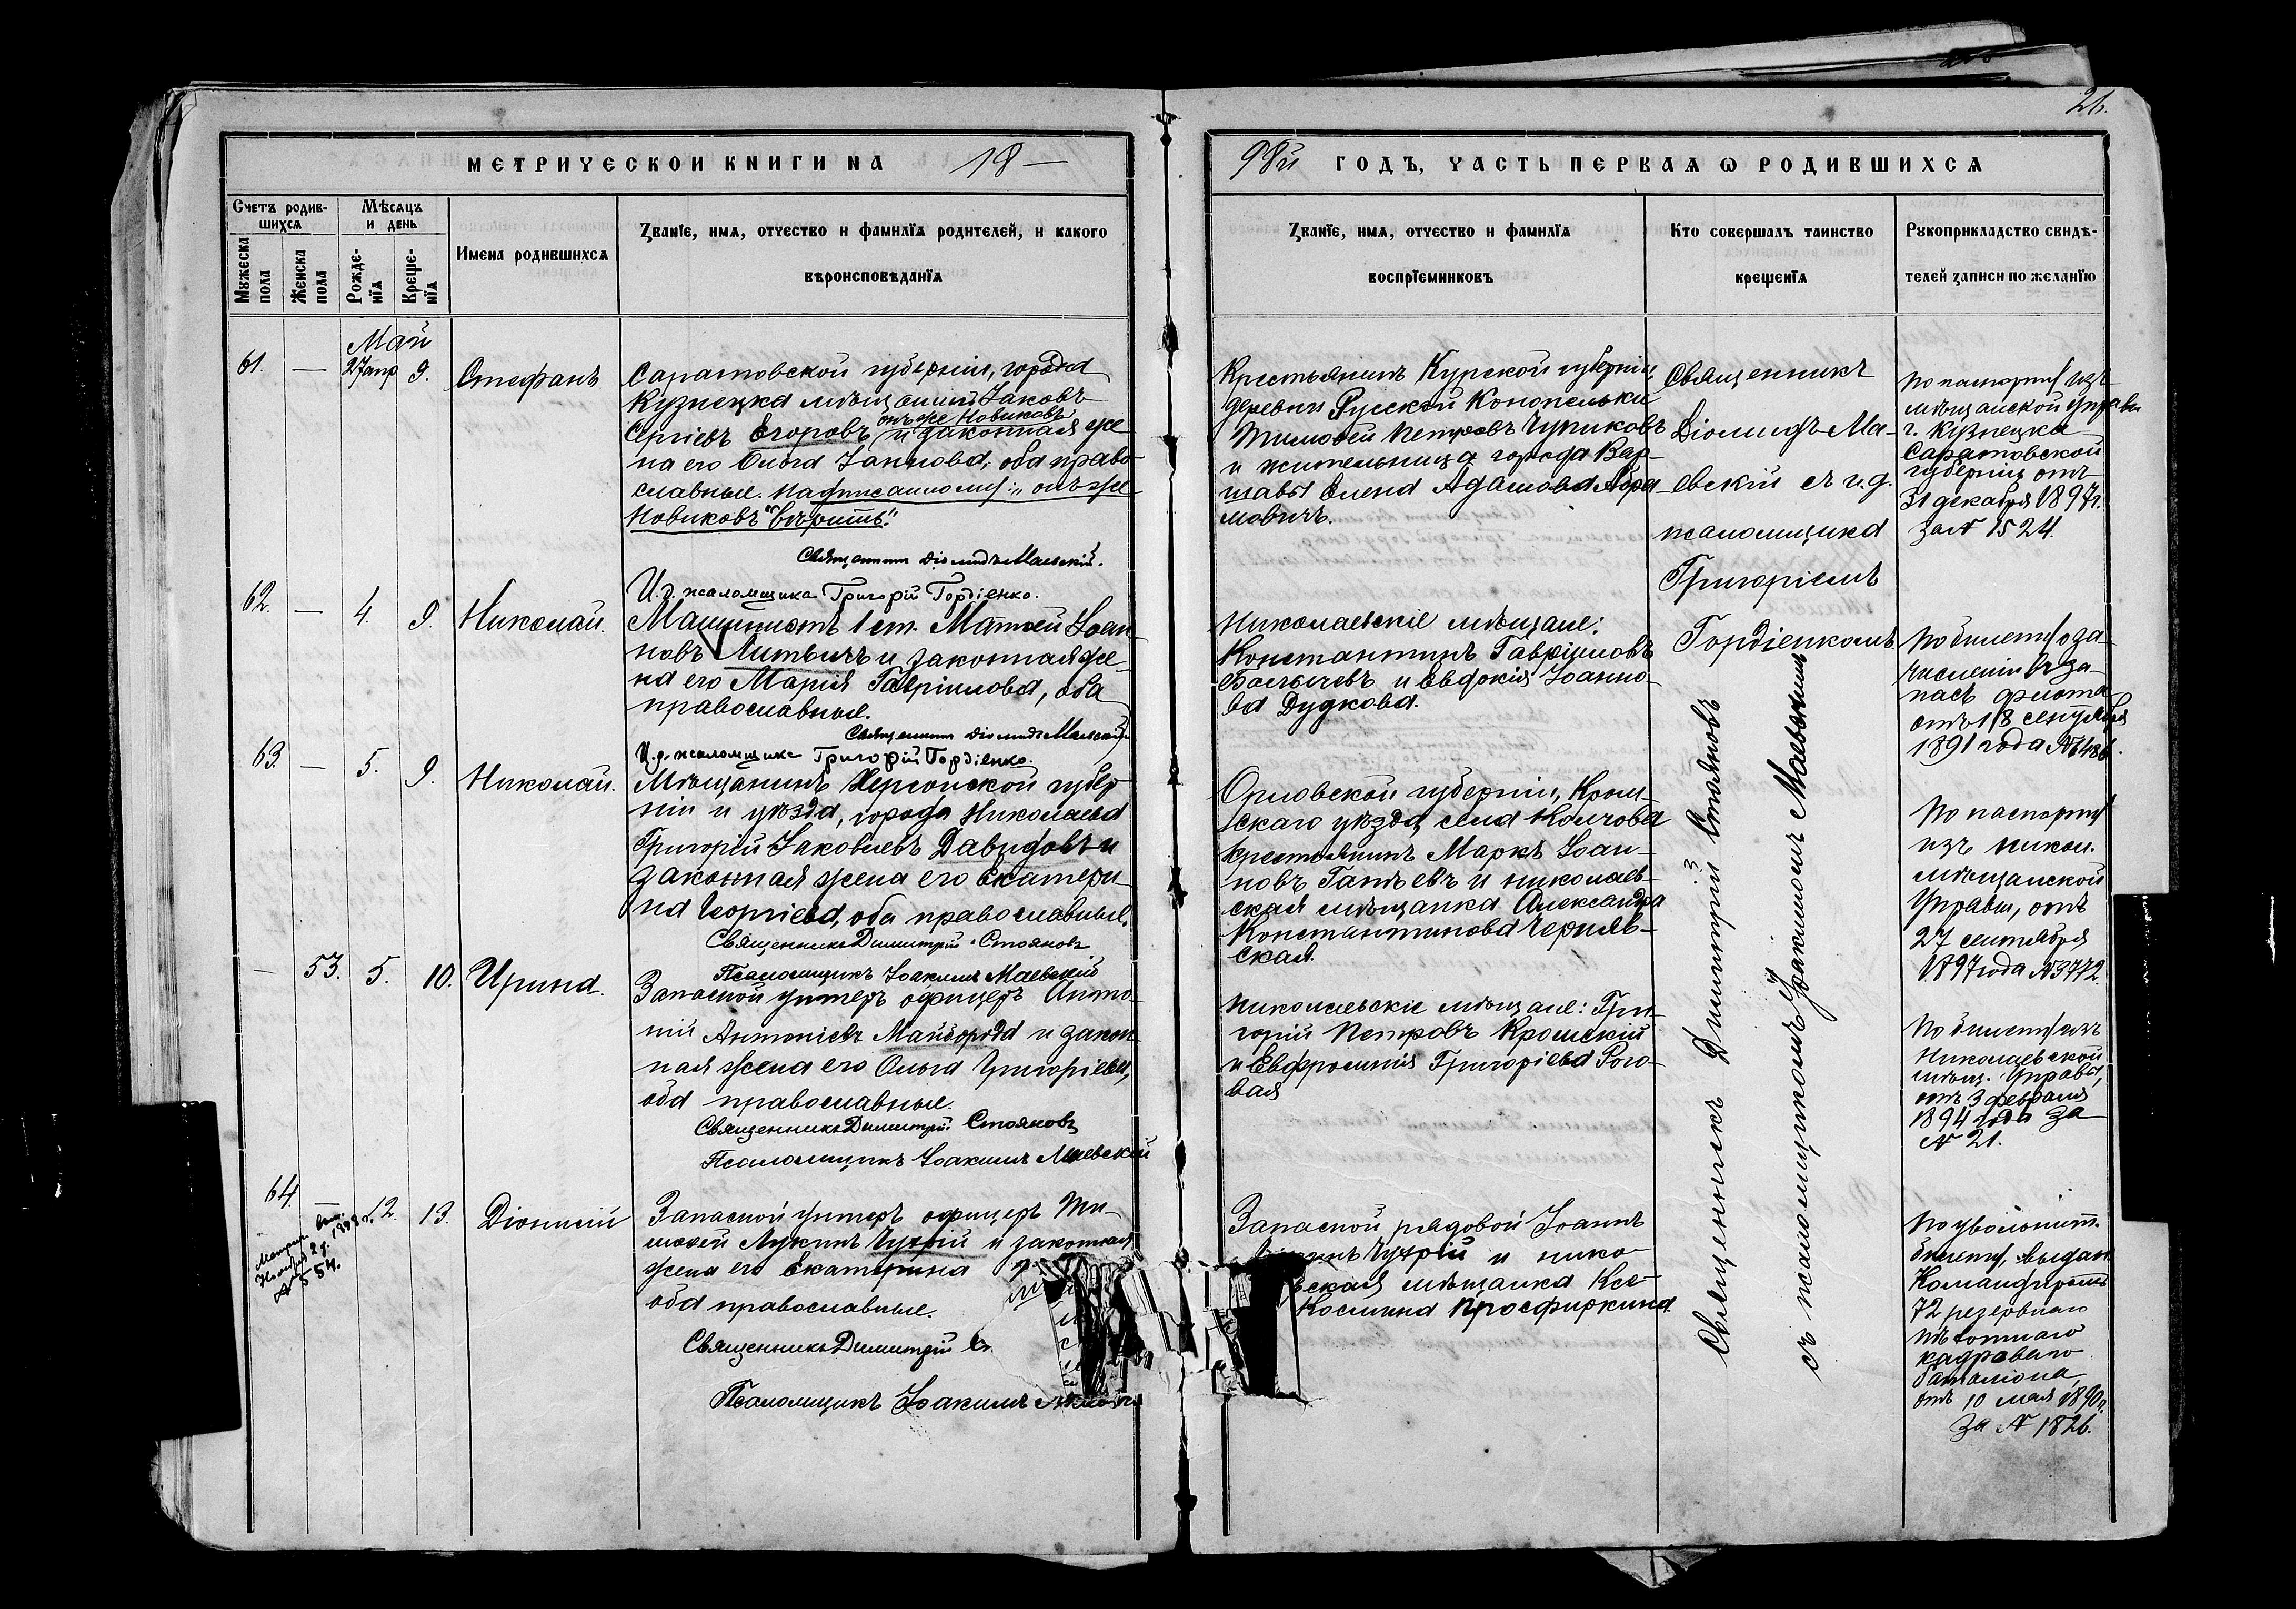 26.
МЕТРИЧЕСКОЙ КНИГИ НА 18 —
98й ГОДЪ, ЧАСТЬ ПЕРВАЯ Ѡ РОДИВШИХСЯ
Счетъ родив-
шихся
Мужеска
пола
Женска
пола
Мѣсяцъ
и день
Рожде-
нія
Креще-
нія
Имена родившихся
Званіе, имя, отчество и фамилія родителей, и какого
вѣроисповѣданія
Званіе, имя, отчество и фамилія
воспріемниковъ
Кто совершалъ таинство
крещенія
Рукоприкладство свидѣ-
телей записи по желанію
Май
61. — 27 апр 9. Стефанъ
Саратовской губерніи, города
Кузнецка мѣщанинъ Іаковъ
онъ же Новиковъ
Сергіевъ Егоровъ и законная же
на его Ольга Іаковова, оба право
славные. Надписанному: „онъ же
Новиковъ" вѣрить.
Священникъ Діомидъ Маевскій.
И. д. псаломщика Григорій Гордіенко.
Крестьянинъ Курской губерніи,
деревни Русской Конопельки
Тимоѳей Петровъ Чуриковъ
и жительница города Вар-
шавы Елена Адамова Абра
мовичъ.
Священникъ
Діомидъ Ма-
евскій съ и. д.
псаломщика
Григоріемъ
Гордіенкомъ
По паспорту изъ
мѣщанской управы
г. Кузнецка
Саратовской
губерніи отъ
31 декабря 1897 г.
за № 1524.
62. — 4. 9. Николай.
Машинистъ 1 ст. Матѳей Іоан
новъ Литвинъ и законная же-
на его Марія Гавріилова, оба
православные.
Священникъ Діомидъ Маевскій
И. д. псаломщика Григорій Гордіенко.
Николаевскіе мѣщане:
Константинъ Гавріиловъ
и Евдокія Іоанно-
ва Дудкова.
По билету о за-
численіи въ за-
пасъ флота
отъ 18 сентября
1891 года №
63. — 5. 9. Николай.
Мѣщанинъ Херсонской губер
ніи и уѣзда, города Николаева
Григорій Іаковлевъ Давидовъ и
законная жена его Екатери-
на Георгіева, оба православные.
Священникъ Димитрій Стояновъ
Псаломщикъ Іоакимъ Маевскій
Орловской губерніи, Кром-
скаго уѣзда, села Колчова
крестьянинъ Маркъ Іоан-
новъ и николаев-
ская мѣщанка Александра
Константинова Черняв-
ская.
Священникъ Димитрій Стояновъ
съ псаломщикомъ Іоакимомъ Маевскимъ
По паспорту
изъ никол.
мѣщанской
Управы, отъ
27 сентября
1897 года № 3772.
— 53. 5. 10. Ирина.
Запасной унтеръ офицеръ Анто-
ній Антоніевъ Майборода и закон
ная жена его Ольга Григоріева,
оба православные.
Священникъ Димитрій Стояновъ
Псаломщикъ Іоакимъ Маевскій
Николаевскіе мѣщане: Гри-
горій Петровъ Кромскій
и Евфросинія Григоріева Рого-
вая
По билету изъ
Николаевской
мѣщ. Управы,
отъ 3 февраля
1894 года за
№ 21.
64. — 12. 13. Діонисій
Метрич. вып.
Ноября 2 д. 1898 г.
№ 554.
Запасной унтеръ офицеръ Ти-
моѳей Лукинъ Чухрій и законная
жена его Екатерина
оба православные.
Священникъ Димитрій
Псаломщикъ Іоакимъ
Запасной рядовой Іоаннъ
Чухрій и нико-
вская мѣщанка Ксе-
Косьмина Просфиркина.
По увольнит.
билету, выдан.
Командиромъ
72 резервнаго
пѣхотнаго
кадроваго
баталіона,
отъ 10 мая 1890 г.
за № 1826.